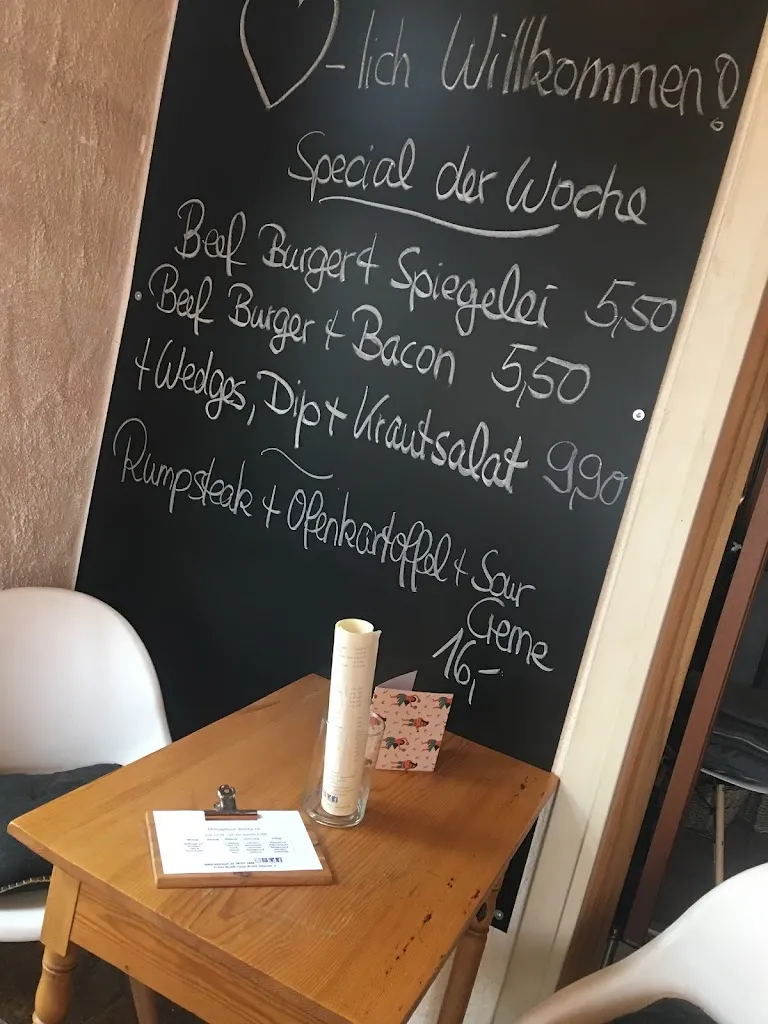 -lich Willkommen!
Special der Woche
Beef Burger + Spiegelei 5,50
Beef Burger + Bacon 5,50
+ Wedges, Dip + Krautsalat 9,90
Rumpsteak + Ofenkartoffel + Sour
Creme
16,-